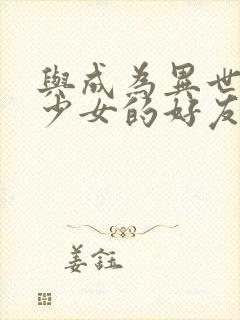 與成為異世
少女的好友
姜鈺